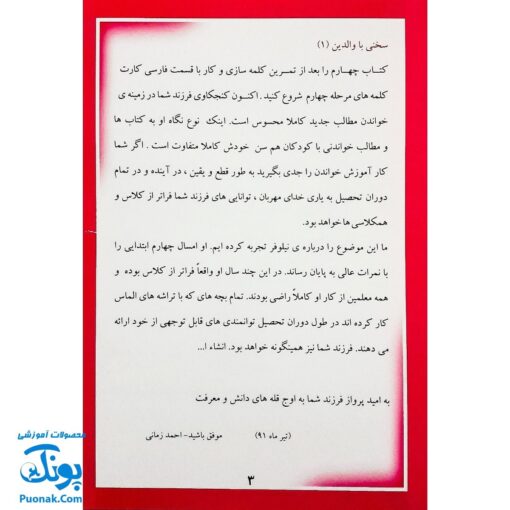 سخنی با والدین (۱)
کتـاب چهـارم را بعد از تمـرین کلمه سازی و کار با قسمت فارسی کارت
کلمه های مرحله چهارم شروع کنید . اکنـون کنجکاوی فرزند شما در زمینه ی
خواندن مطالب جدید کاملا محسوس است. اینک نوع نگاه او به کتاب ها
و مطالب خواندنی با کودکان هم سن خودش کاملا متفاوت است . اگر شما
کار آموزش خواندن را جدی بگیرید به طور قطع و یقین ، در آینده و در تمام
دوران تحصیل به یاری خدای مهربان ، توانایی های فرزند شما فراتر از کلاس و
همکلاسی ها خواهد بود.
ما این موضوع را درباره ی نیلوفر تجربه کرده ایم. او امسال چهارم ابتدایی را
با نمرات عالی به پایان رساند. در این چند سال او واقعاً فراتر از کلاس بوده و
همه معلمین از کار او کاملاً راضی بودند. تمام بچه های که با تراشه های الماس
کار کرده اند در طول دوران تحصیل توانمندی های قابل توجهی از خود ارائه
می دهند. فرزند شما نیز همینگونه خواهد بود. انشاء ا...
به امید پرواز فرزند شما به اوج قله های دانش و معرفت
موفق باشید- احمد زمانی (تیر ماه ۹۱)
۳
محصولات آموزشی
پونک
Puonak.Com